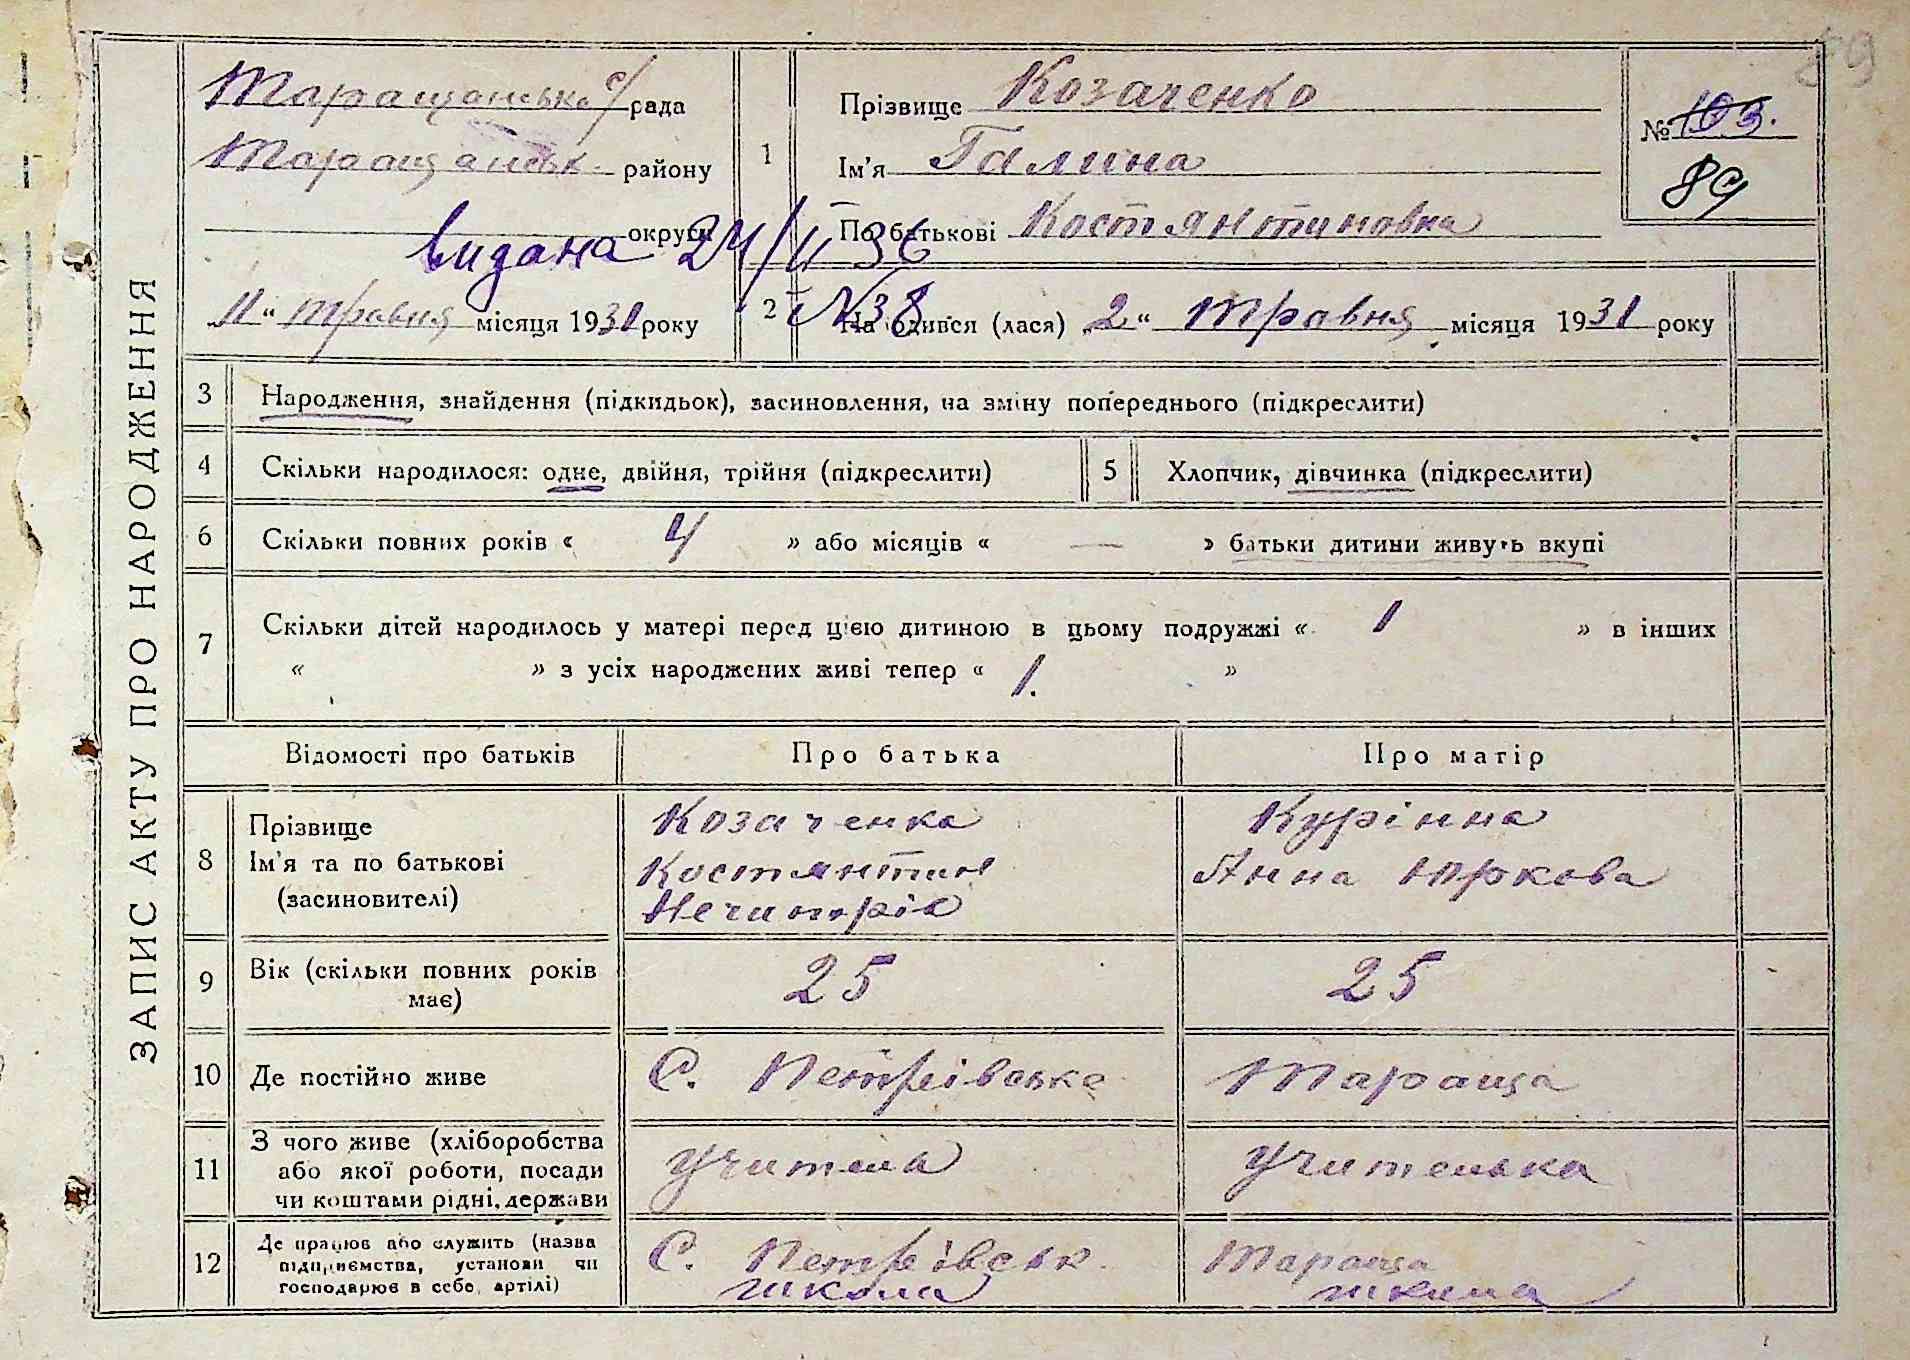 89
ЗАПИС АКТУ ПРО НАРОДЖЕННЯ
Таращанська с/рада
Таращанськ. району
округи
видана 24/II 36
№38
"11" травня місяця 1931 року
1 Прізвище Козаченко
Ім'я Галина
По батькові Костянтиновка
№ 103.
89
2 На одився (лася) "2" травня місяця 1931 року
3 Народження, знайдення (підкидьок), засиновлення, на зміну попереднього (підкреслити)
4 Скільки народилося: одне, двійня, трійня (підкреслити)
5 Хлопчик, дівчинка (підкреслити)
6 Скільки повних років « 4 » або місяців « — » батьки дитини живуть вкупі
7 Скільки дітей народилось у матері перед цією дитиною в цьому подружжі « 1 » в інших
« » з усіх народжених живі тепер « 1. »
Відомості про батьків Про батька Про матір
8 Прізвище
Ім'я та по батькові
(засиновителі)
Козаченка
Костянтин
Нечипрів
Курінна
Анна Юркова
9 Вік (скільки повних років
має)
25 25
10 Де постійно живе С. Петрівська Тараща
11 З чого живе (хліборобства
або якої роботи, посади
чи коштами рідні, держави
учитель учителька
12 Де працює або служить (назва
підприємства, установи чи
господарює в себе, артілі)
С. Петрівськ.
школа
Тараща
школа